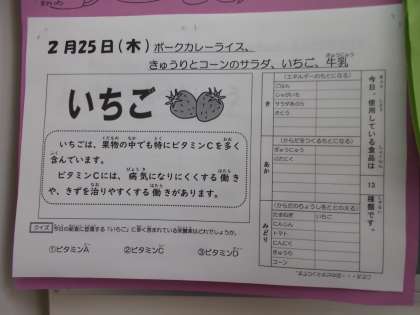 2月25日(木) ポークカレーライス、
きゅうりとコーンのサラダ、いちご、牛乳
ぎゅうにゅう
いちご
いちごは、果物の中でも特にビタミンCを多く
含んでいます。
ビタミンCには、病気になりにくくする働き
や、きずを治りやすくする働きがあります。
クイズ 今日の給食に登場する「いちご」に多く含まれている栄養素はどれでしょうか。
①ビタミンA ②ビタミンC ③ビタミンD
今日、使用している食品は 13 種類です。
き
(エネルギーのもとになる)
ごはん
じゃがいも
サラダあぶら
さとう
あか
(からだをつくるもとになる)
ぎゅうにゅう
ぶたにく
みどり
(からだのちょうしをととのえる)
たまねぎ いちご
にんじん
トマト
にんにく
きゅうり
コーン